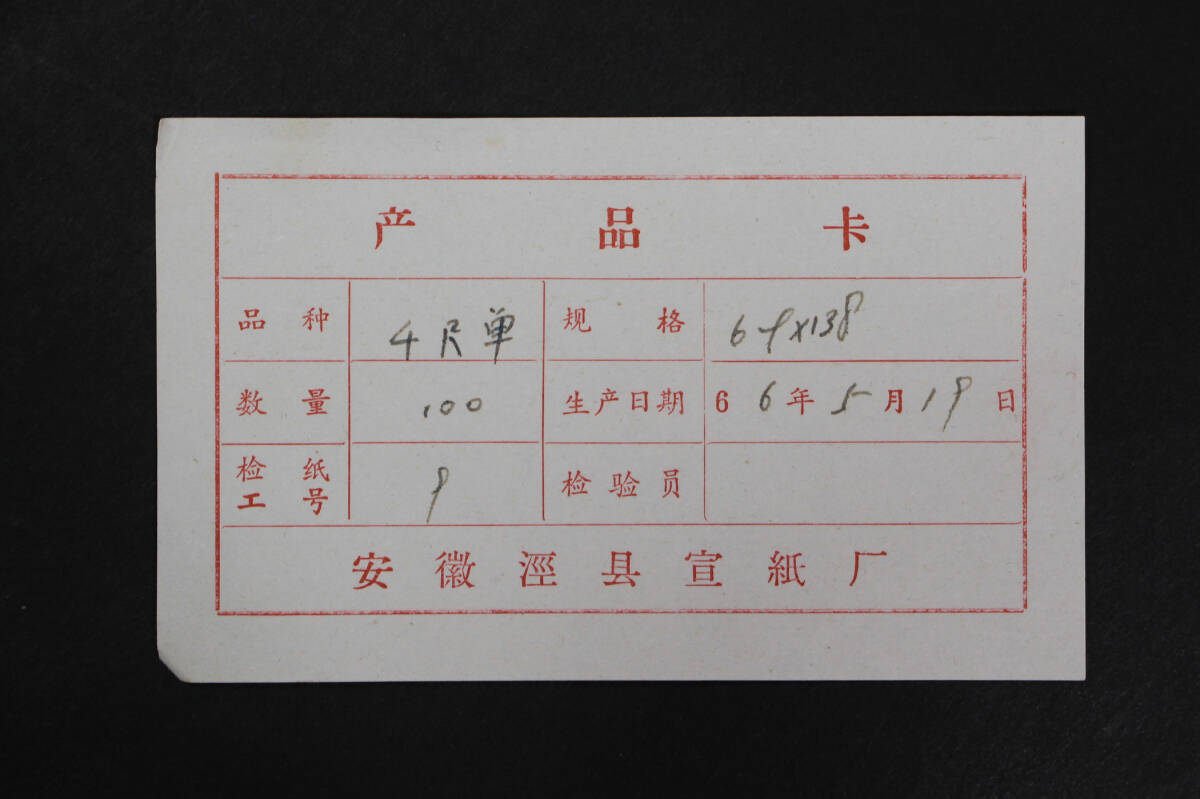 产品卡
品种 4尺单 规格 69×138
数量 100 生产日期 66年5月19日
检纸工号 9 检验员
安徽涇县宣紙厂